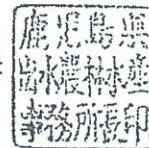 鹿児島県
出水農林水産
事務所長印